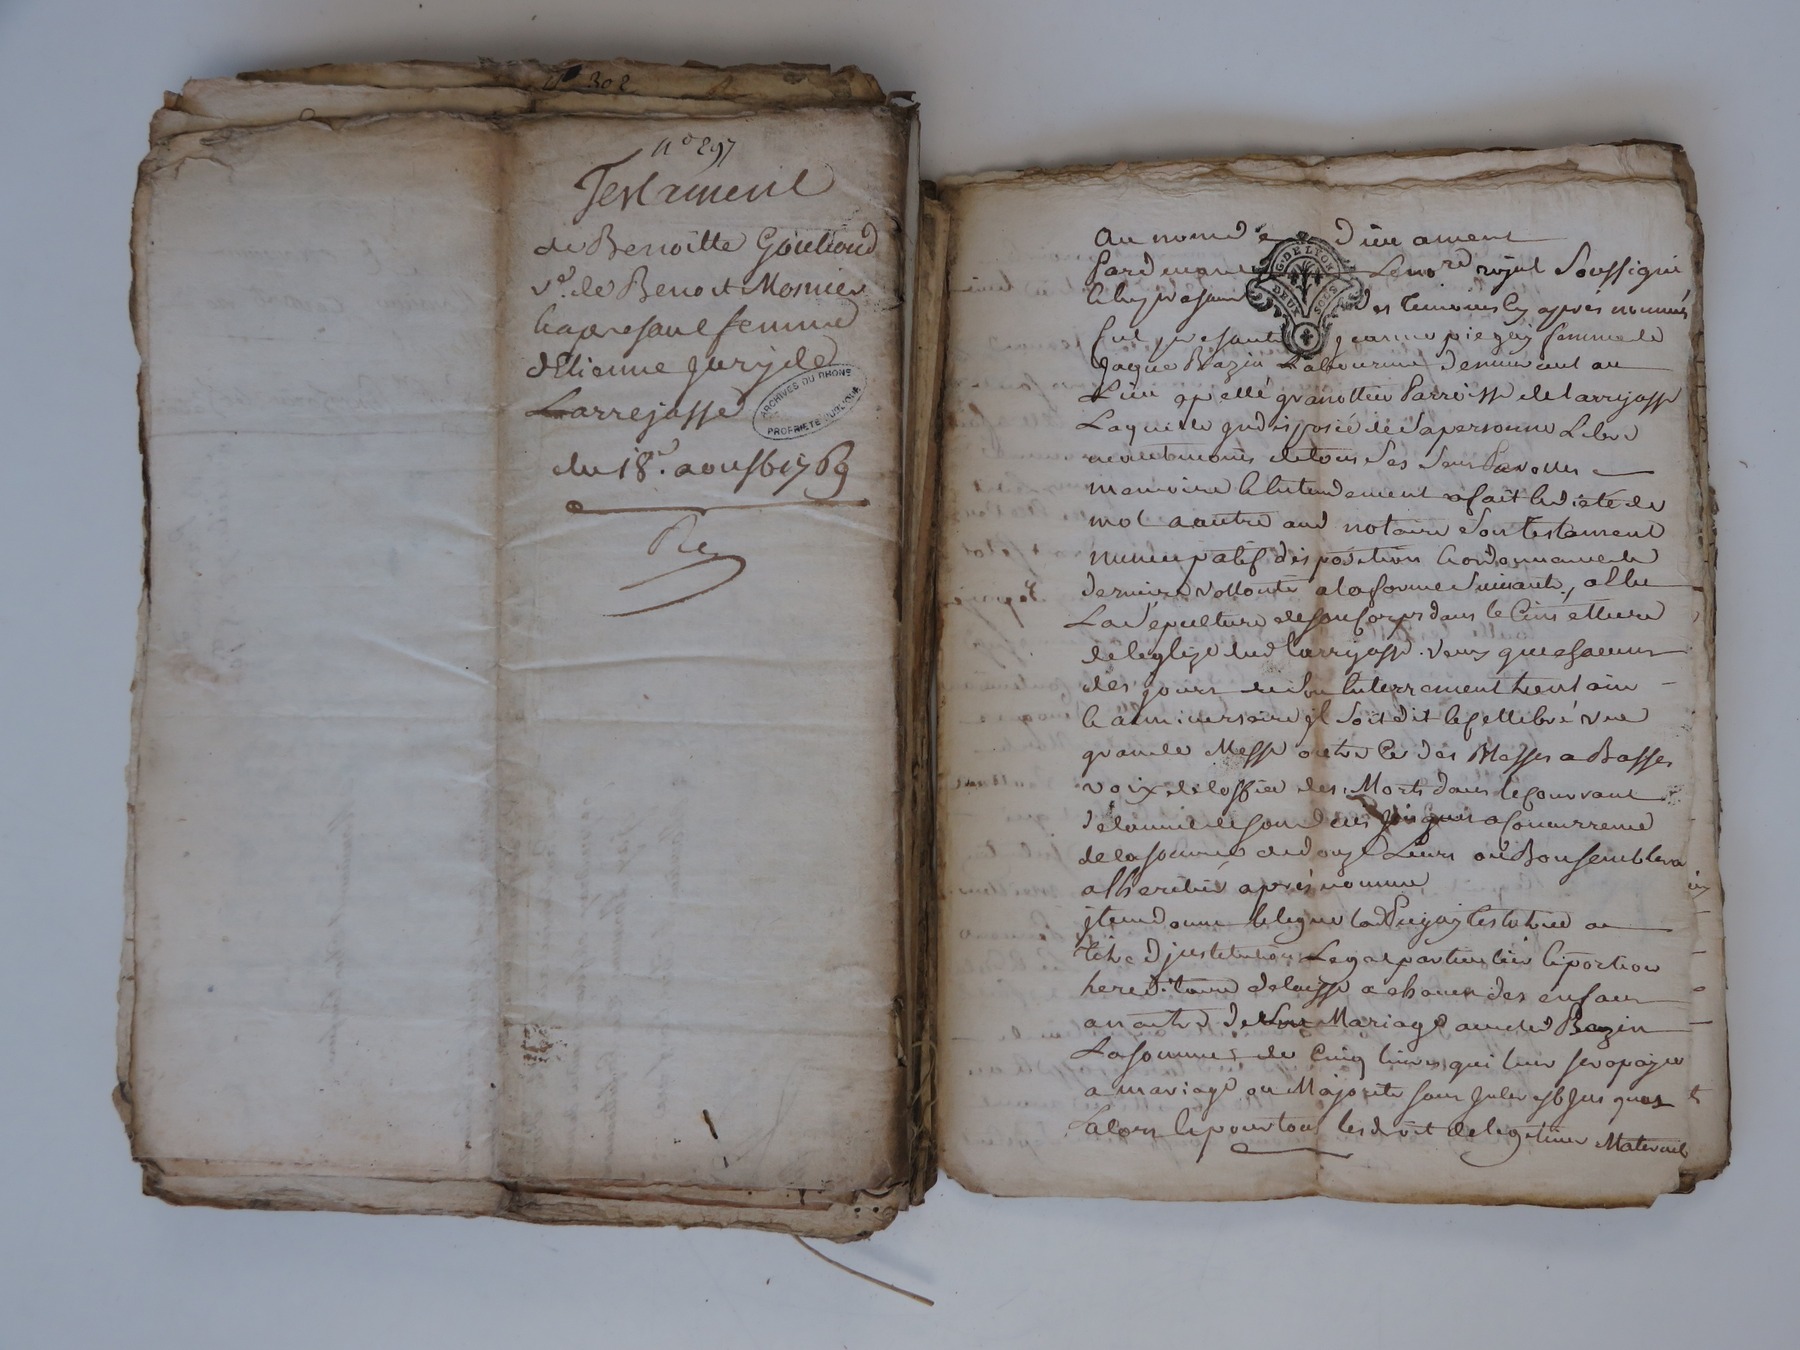 n° 302
n° 297
Testament
de Benoitte Goutiaud
v.e de Benoit Mosnier
Ea presant femme
d'Etienne Jury de
Larrejasse
du 18.e aoust 1769
ARCHIVES DU RHONE
PROPRIETE PUBLIQUE
au nom de dieu amen
G. DE LYON
DEUX SOUS
Pardevant Le no.re royal Soussigné
Et en presance des temoins Cy apres nommés
fut presante jeanne piegay femme de
Jaque Bazin Laboureur demeurant au
Lieu apellé granottier Parroisse de larryasse
Laquelle disposée de sa personne Libre
neantmoins de tous ses sens Parolle
memoire Et entendement a fait Et dicté de
mot a autre aud notaire Son testament
nuncupatif disposition Et ordonnance de
derniere vollonté a la forme Suivante, a Elu
La Sepulture de son Corps dans le Cimettiere
de leglize dud larryasse. veux qu'a chacun
des jours de Son Enterrement trentain
Et anniversaire il Soit dit Et cellebré une
grande Messe outre Ce des Messes a Basses
voix de loffice des Morts dans le Courrant
de lannée de son deces jusques a Concurrance
de la somme de douze Livres ou Bon semblera
a lheritié apres nommé
jtem donne Et legue lad Piegay testatrice a
titre d'justitution Legat particulier Et portion
hereditaire delaisse a chacun des enfans
a naitre de Son Mariage avec led Bazin
La somme de Cinq livres qui leur sera payée
a mariage ou Majorité sans Jnterest jusques
alors Et pour tous les droit de legitime Maternel